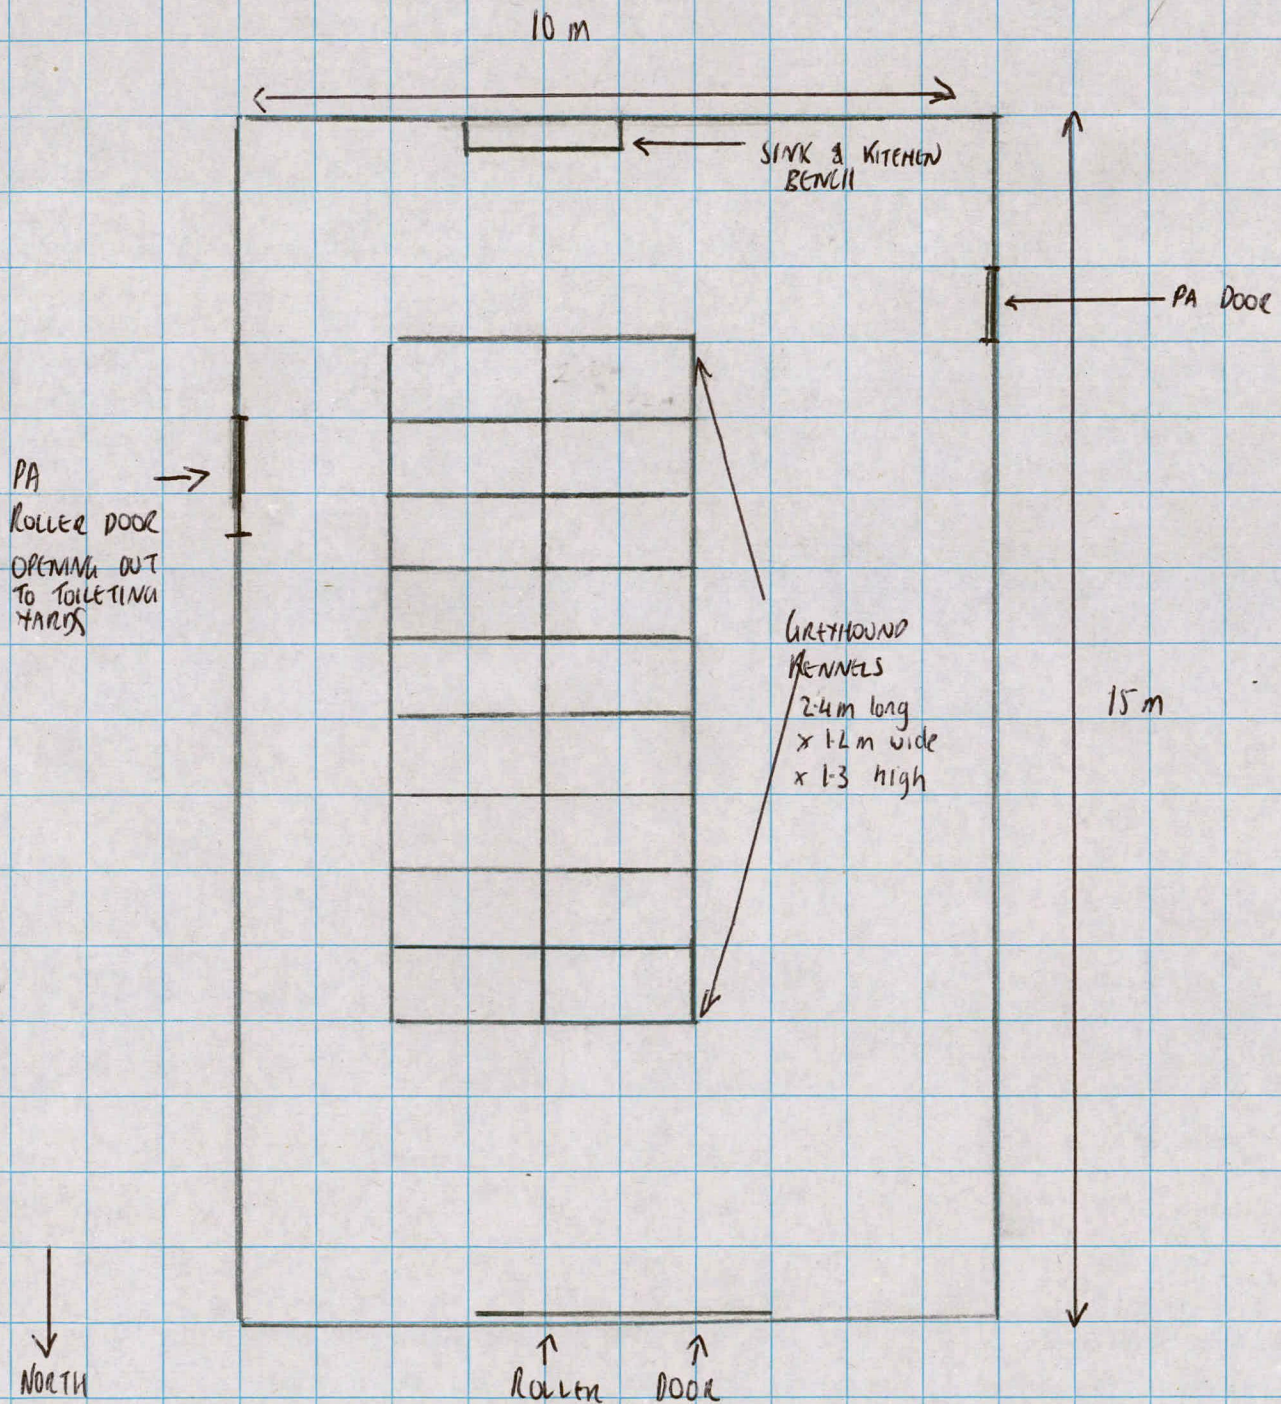 10 m
SINK & KITCHEN
BENCH
PA DOOR
PA
ROLLER DOOR
OPENING OUT
TO TOILETING
YARDS
GREYHOUND
KENNELS
2.4m long
x 1.2m wide
x 1.3 high
15 m
NORTH
ROLLER DOOR